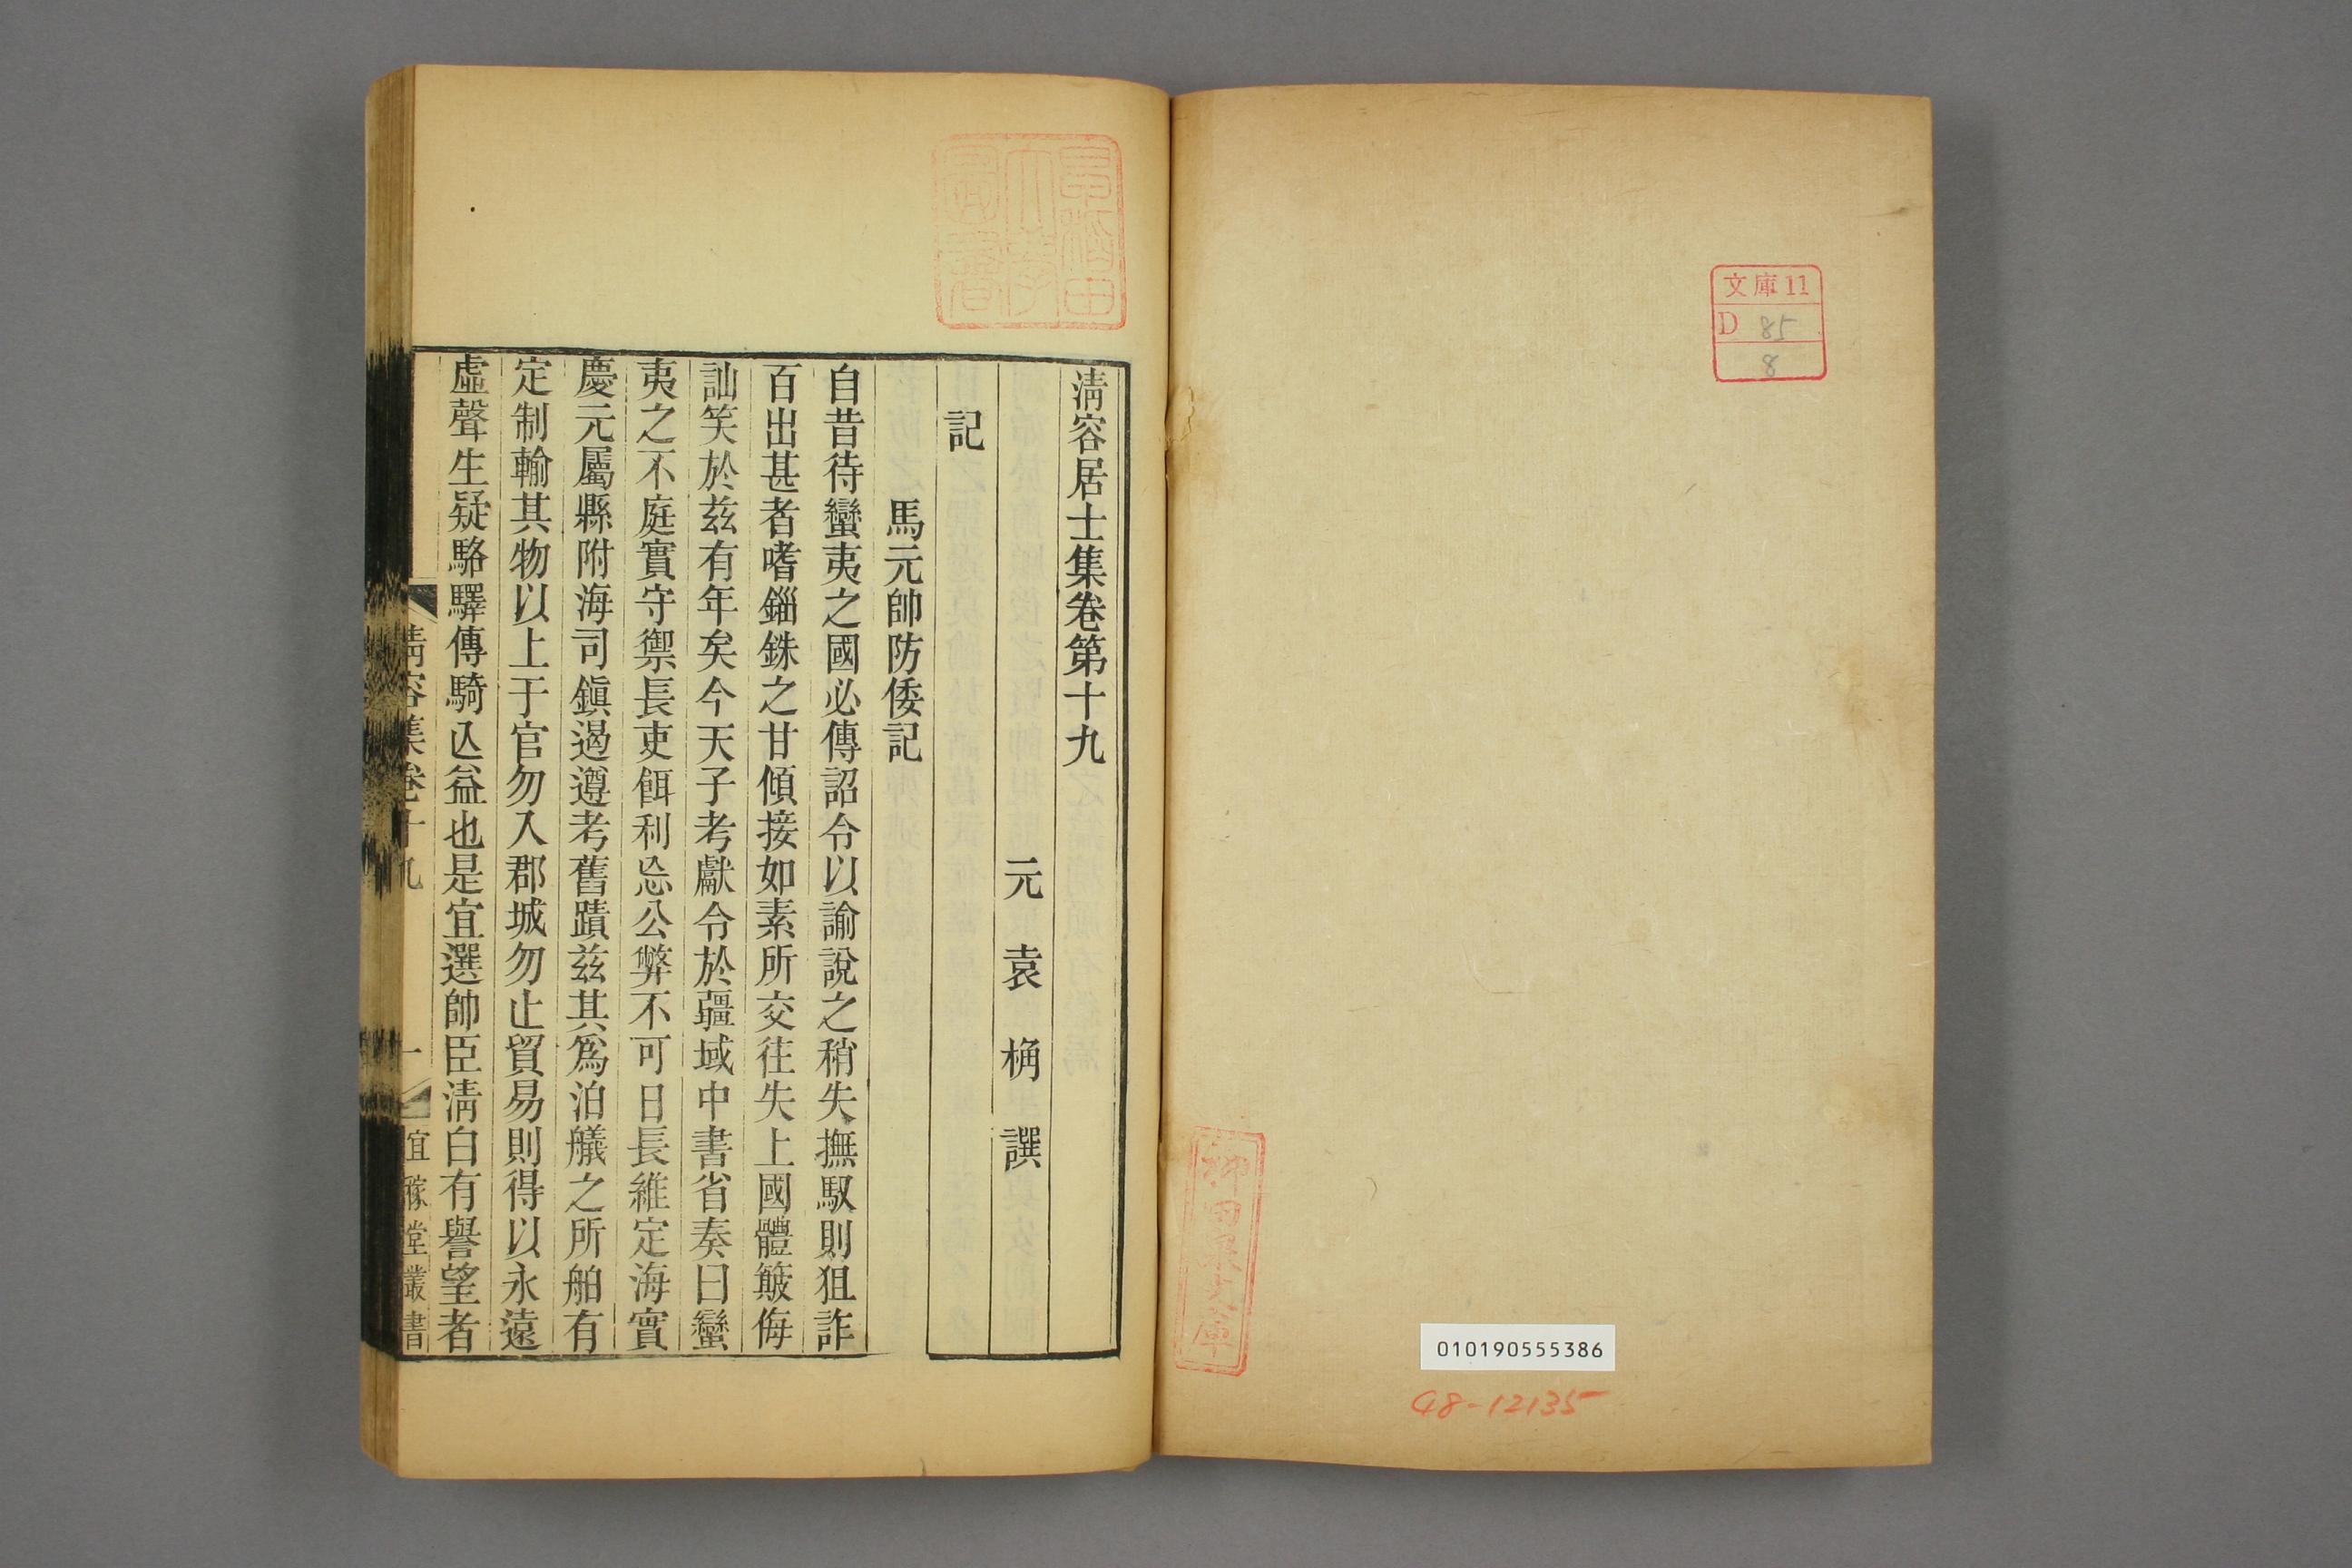 文庫11
D 85
8
010190555386
48-12135
柳田泉文庫
早稲田
大學
圖書
清容居士集卷第十九
元袁桷譔
記
馬元帥防倭記
自昔待蠻夷之國必傳詔令以諭說之稍失撫馭則狙詐
百出甚者嗜錙銖之甘傾接如素所交往失上國體簸侮
訕笑於兹有年矣今天子考獻令於疆域中書省奏曰蠻
夷之不庭實守禦長吏餌利忘公弊不可日長維定海實
慶元屬縣附海司鎭遏遵考舊蹟兹其爲泊艤之所舶有
定制輸其物以上于官勿入郡城勿止貿易則得以永遠
虛聲生疑駱驛傳騎亾益也是宜選帥臣淸白有譽望者
清容集卷十九
一
宜稼堂叢書